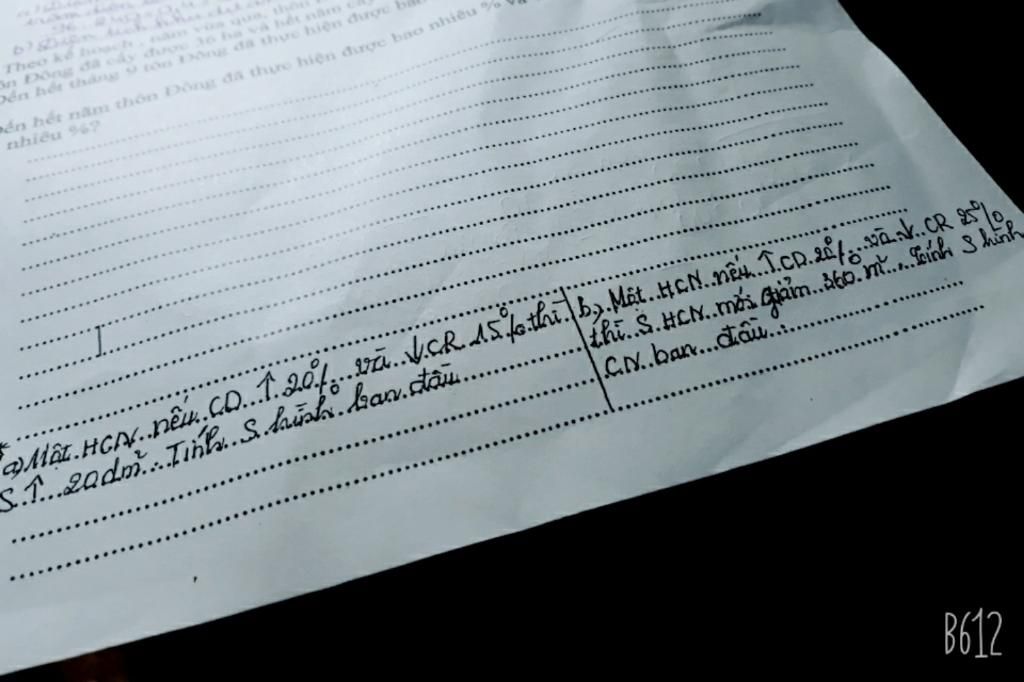 b) Diện tích
Theo kế hoạch, năm vừa qua, thôn
Đông đã cấy được 36 ha và hết năm cấy
Đến hết tháng 9 tôn Đông đã thực hiện được bao nhiêu % và
hết năm thôn Đông đã thực hiện được bao
nhiêu %?
a) Một HCN nếu CD ↑ 20% và ↓ CR 15% thì
S ↑ 20dm². Tính S hình ban đầu
b) Một HCN nếu ↑ CD 20% và ↓ CR 25%
thì S HCN mới giảm 360 m². Tính S hình
CN ban đầu.
B612